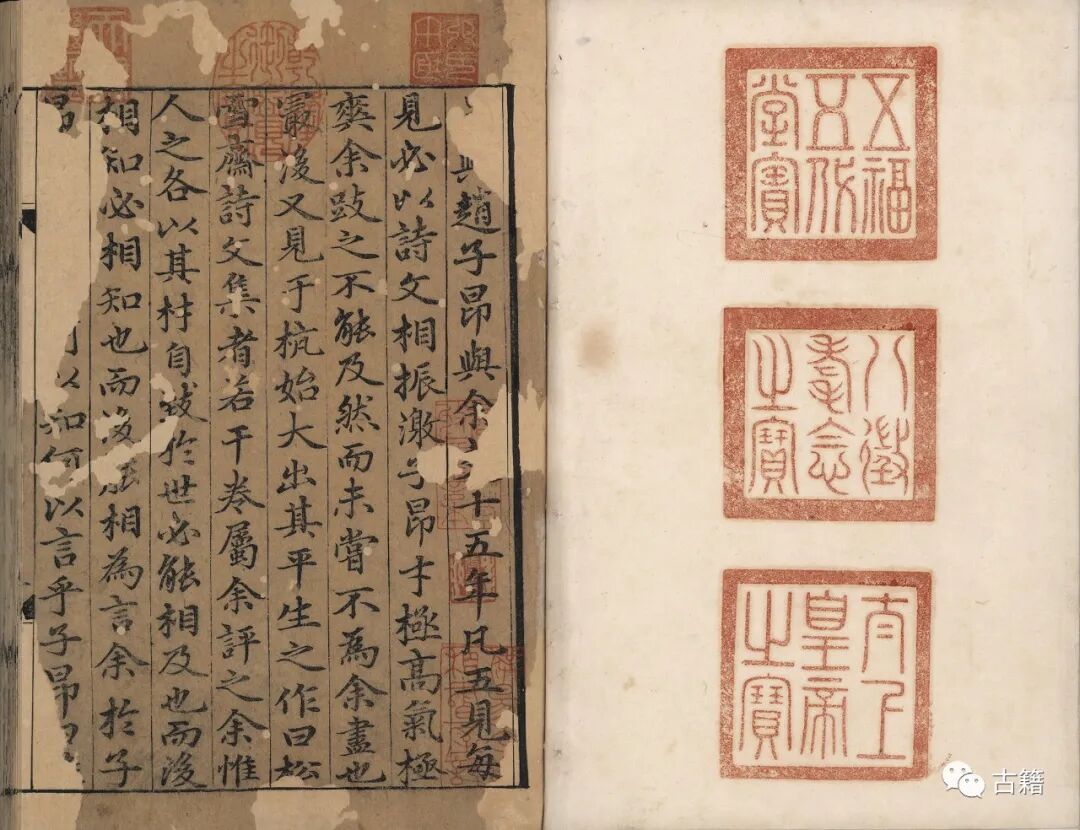 五福
五代
堂寶
八徵
耄念
之寶
太上
皇帝
之寶
趙子昂與余十五年凡五見每
見必以詩文相振激子昂才極高氣極
爽余跂之不能及然而未嘗不為余盡也
冣後又見于杭始大出其平生之作曰松
雪齋詩文集者若干卷屬余評之余惟
人之各以其材自致於世必能相及也而後
相知必相知也而後能相為言余於子
昂以知何以言乎子昂
古籍